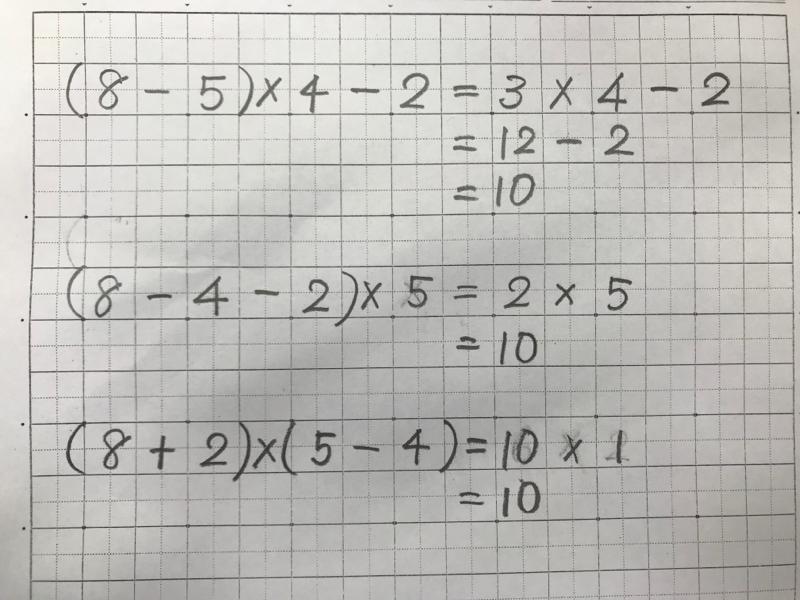 (8 - 5) × 4 - 2 = 3 × 4 - 2
= 12 - 2
= 10
(8 - 4 - 2) × 5 = 2 × 5
= 10
(8 + 2) × (5 - 4) = 10 × 1
= 10